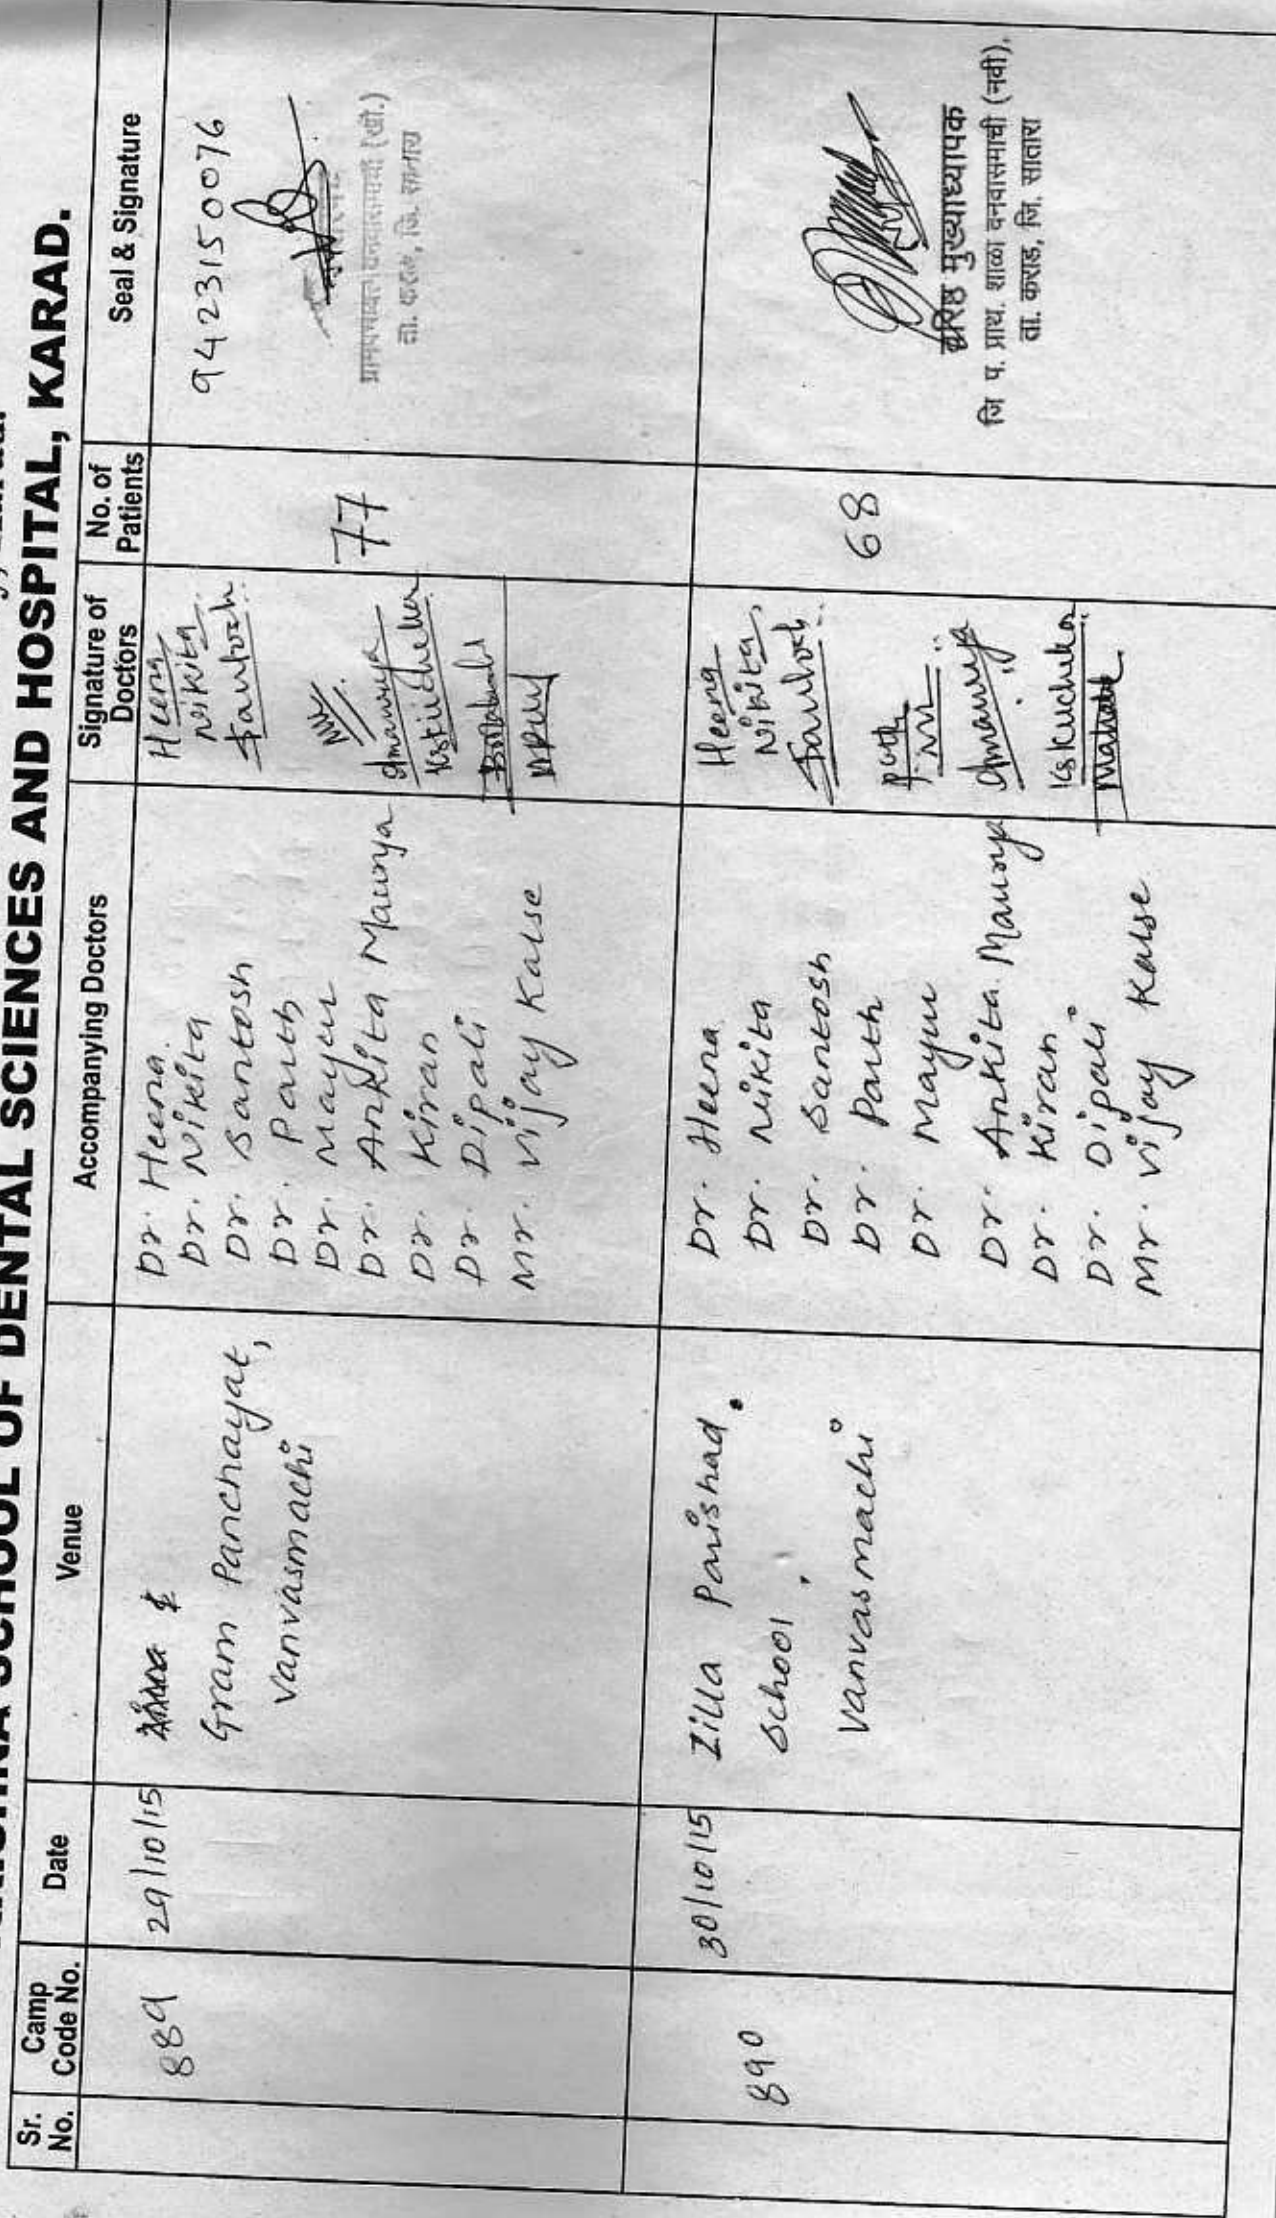 SCHOOL OF DENTAL SCIENCES AND HOSPITAL, KARAD.
Sr. No.
Camp Code No.
Date
Venue
Accompanying Doctors
Signature of Doctors
No. of Patients
Seal & Signature
889
29/10/15
Gram Panchayat,
Vanvasmachi
Dr. Heena
Dr. Nikita
Dr. Santosh
Dr. Parth
Dr. Mayur
Dr. Ankita Maurya
Dr. Kiran
Dr. Dipali
Mr. Vijay Kalse
Heena
Nikita
77
9423150076
ता. कराड, जि. सातारा
890
30/10/15
Zilla Parishad
School
Vanvasmachi
Dr. Heena
Dr. Nikita
Dr. Santosh
Dr. Parth
Dr. Mayur
Dr. Ankita Maurya
Dr. Kiran
Dr. Dipali
Mr. Vijay Kalse
Heena
Nikita
68
मुख्याध्यापक
जि प. प्राथ. शाळा वनवासमाची (नवी).
ता. कराड, जि. सातारा